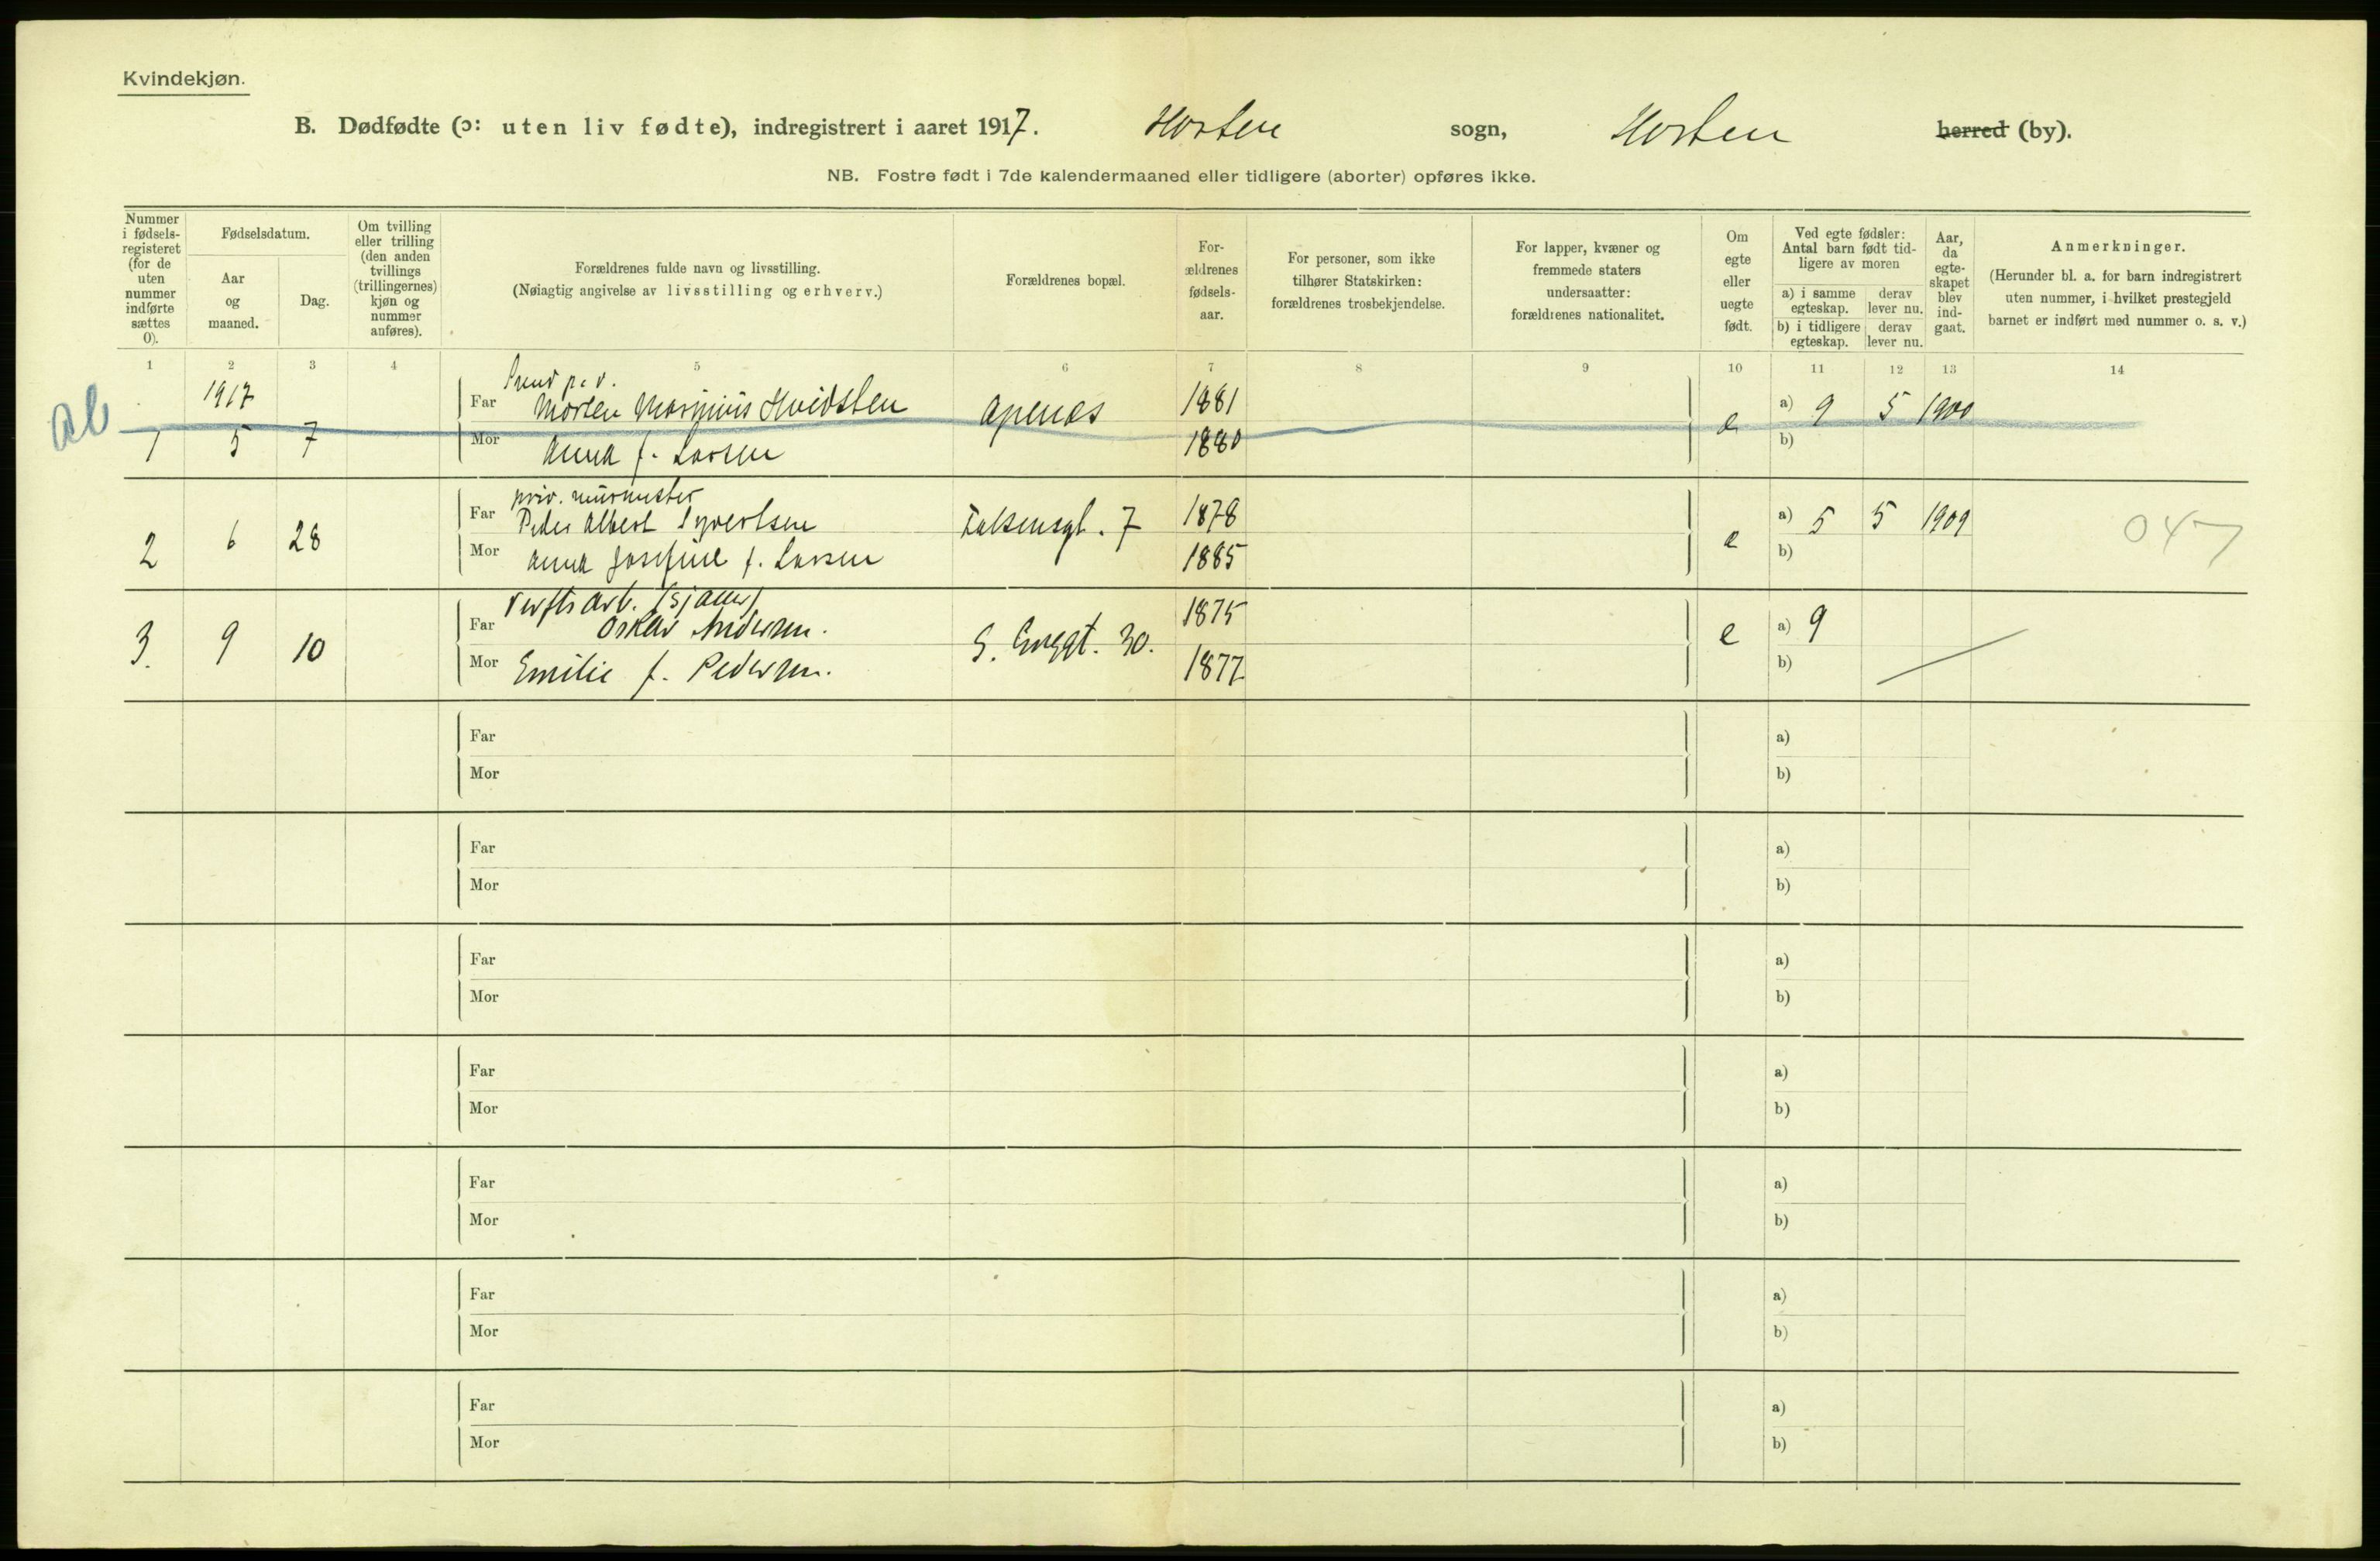 Kvindekjøn.
B. Dødfødte (ɔ: uten liv fødte), indregistrert i aaret 1917. Horten sogn, Horten herred (by).
NB. Fostre født i 7de kalendermaaned eller tidligere (aborter) opføres ikke.
Nummer i fødselsregisteret (for de uten nummer indførte sættes 0).
Fødselsdatum.
Aar og maaned.
Dag.
Om tvilling eller trilling (den anden tvillings (trillingernes) kjøn og nummer anføres).
Forældrenes fulde navn og livsstilling.
(Nøiagtig angivelse av livsstilling og erhverv.)
Forældrenes bopæl.
Forældrenes fødselsaar.
For personer, som ikke tilhører Statskirken: forældrenes trosbekjendelse.
For lapper, kvæner og fremmede staters undersaatter: forældrenes nationalitet.
Om egte eller uegte født.
Ved egte fødsler: Antal barn født tidligere av moren
a) i samme egteskap.
derav lever nu.
b) i tidligere egteskap.
derav lever nu.
Aar, da egteskapet blev indgaat.
Anmerkninger.
(Herunder bl. a. for barn indregistrert uten nummer, i hvilket prestegjeld barnet er indført med nummer o. s. v.)
1 2 3 4 5 6 7 8 9 10 11 12 13 14
ab
1917
Far Morten Marinius Hvidsten Apenes 1881 a) 9 5 1900
1 5 7 Mor Anna f. Larsen 1880 e b)
priv. murmester
Far Peder Albert Syvertsen Falsensgt. 7 1878 a) 5 5 1909
2 6 28 Mor Anna Josefine f. Larsen 1885 e b)
047
Verftsarb. (sjauer)
Far Oskar Andersen. 1875 a) 9
3. 9 10 Mor Emilie f. Pedersen. S. Enggt. 30. 1877 e b)
Far a)
Mor b)
Far a)
Mor b)
Far a)
Mor b)
Far a)
Mor b)
Far a)
Mor b)
Far a)
Mor b)
Far a)
Mor b)